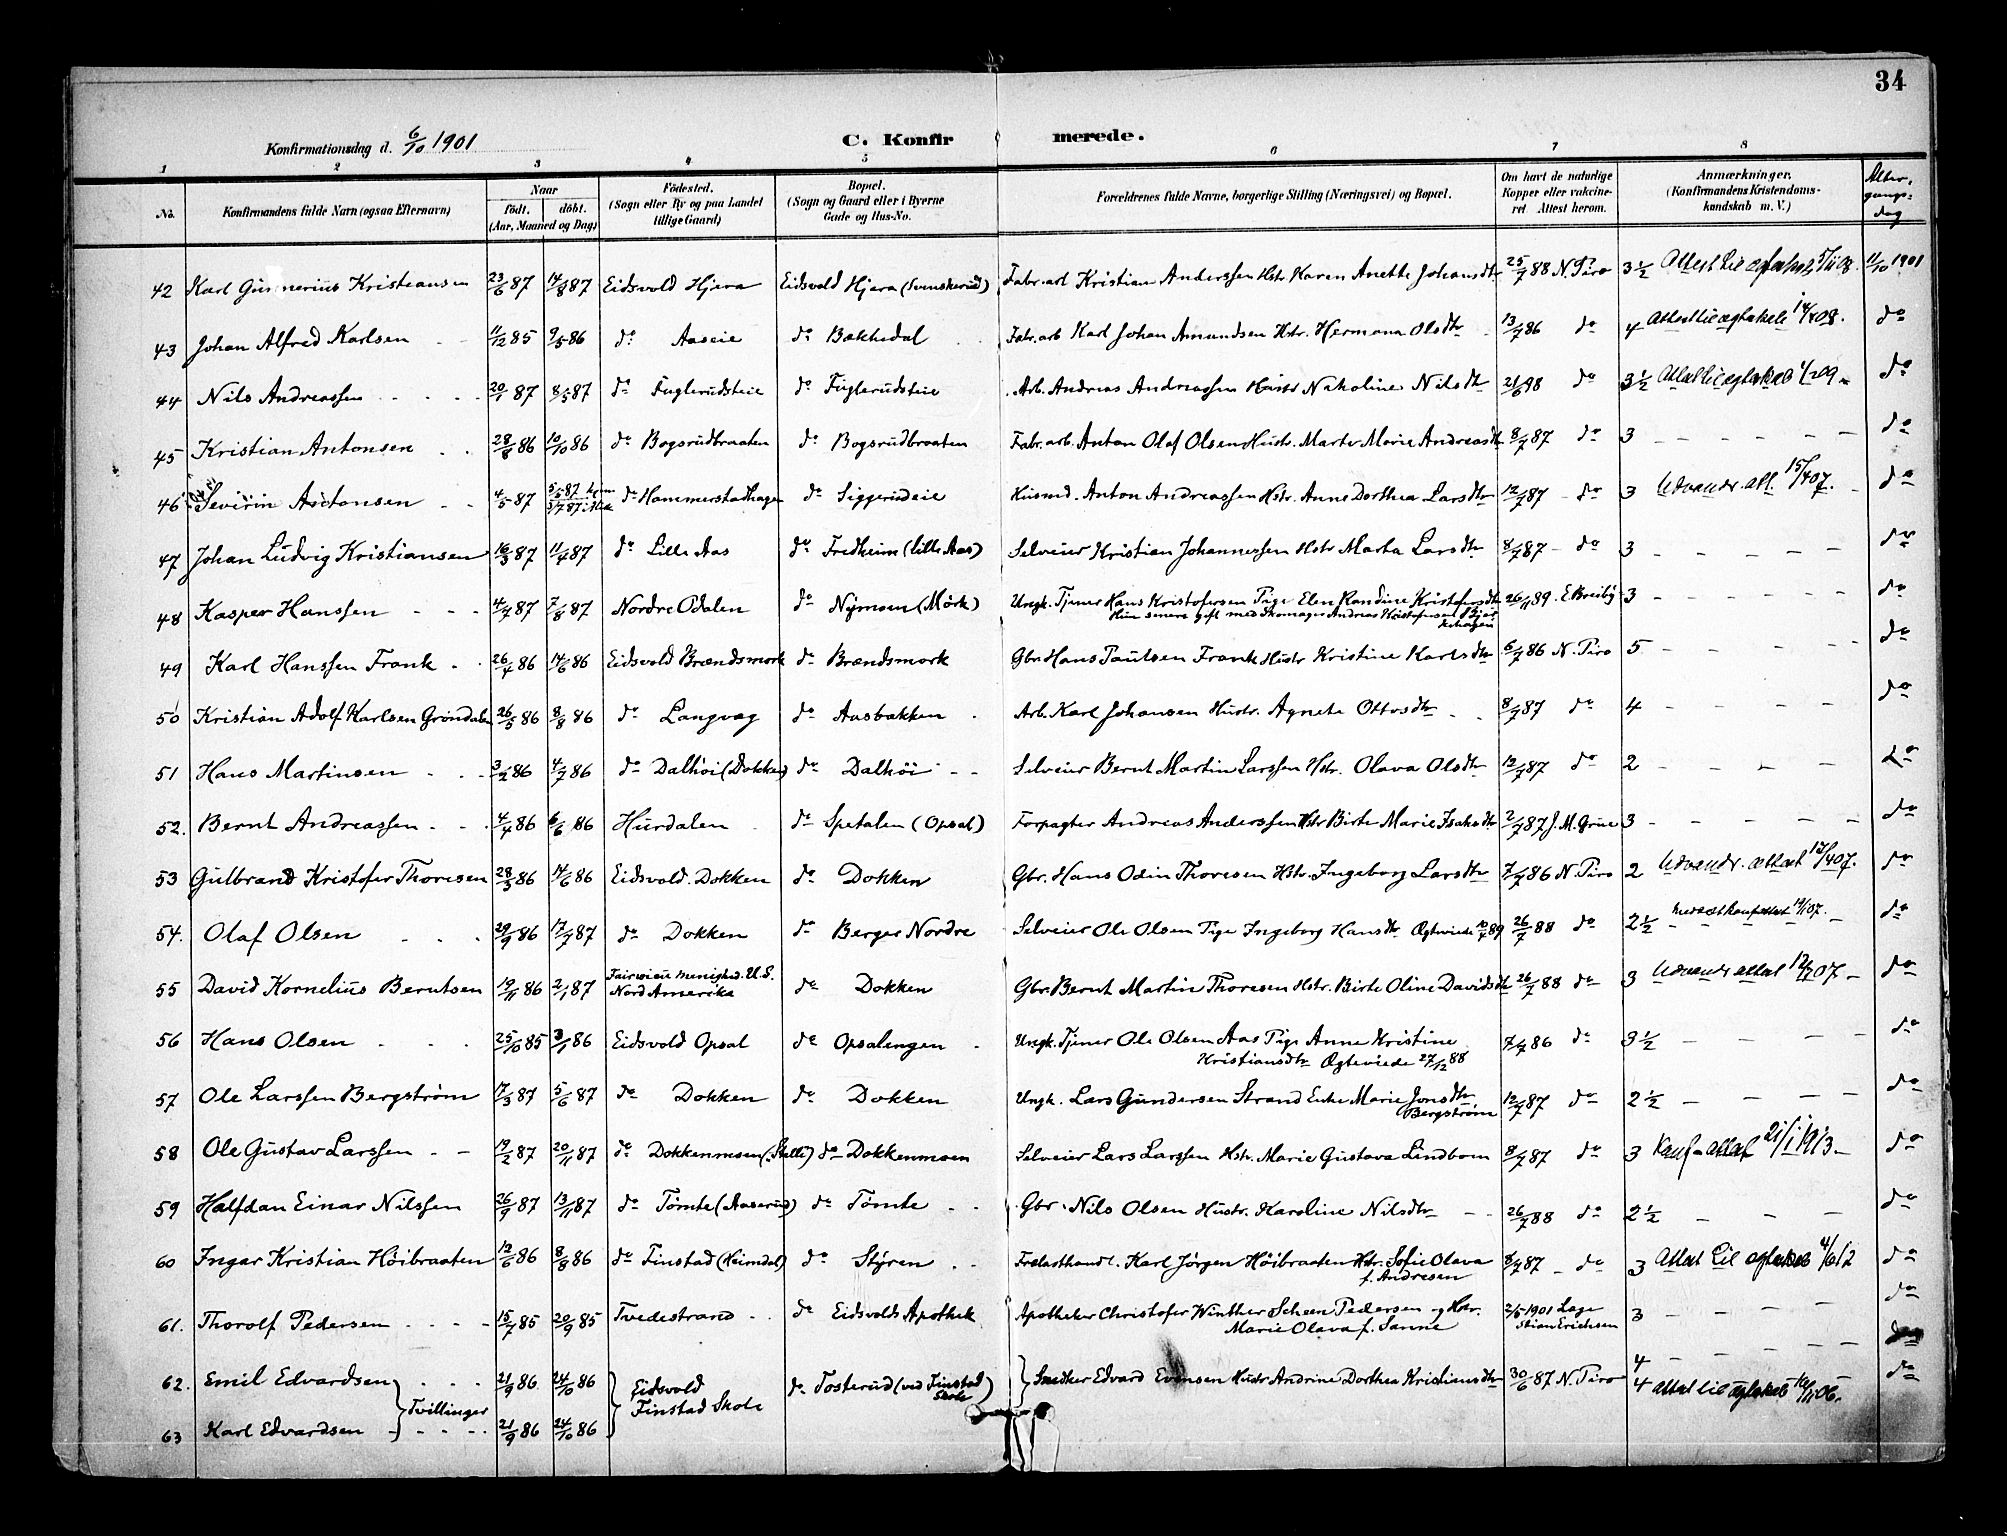 34
Konfirmationsdag d. 6/10 1901 C. Konfirmerede.
1 2 3 4 5 6 7 8
No. Konfirmandens fulde Navn (ogsaa Efternavn) Naar født. døbt. (Aar, Maaned og Dag) Fødested. (Sogn eller By og paa Landet tillige Gaard) Bopæl. (Sogn og Gaard eller i Byerne Gade og Hus-No. Forældrenes fulde Navne, borgerlige Stilling (Næringsvei) og Bopæl. Om havt de naturlige Kopper eller vakcineret. Attest herom. Anmærkninger. (Konfirmandens Kristendomskundskab m. V.) Altergangsdag
42 Karl Gunnerius Kristiansen 23/6 87 14/8 87 Eidsvold Hjera Eidsvold Hjera (Svenskerud) Fabr. arb Kristian Anderssen Hstr. Karen Anette Johansdtr 25/7 88 N. Piro 3 1/2 Attest til 11/10 1901
43 Johan Alfred Karlsen 11/12 85 9/5 86 do Aaseie do Bækkedal Fabr. arb Karl Johan Amundsen Hstr. Hermana Olsdtr 13/7 86 do 4 Attest til ægteskab 14/4 08. do
44 Nils Andreassen 20/1 87 8/5 87 do Fuglerudsteie do Fuglerudsteie Arb. Andreas Andreassen Hustr Nikoline Nilsdtr 21/6 98 do 3 1/2 Attest til ægteskab do
45 Kristian Antonsen 28/8 86 10/10 86 do Bogsrudbraaten do Bogsrudbraaten Fabr. arb. Anton Olaf Olsen Hustr. Marte Marie Andreasdtr 8/7 87 do 3 do
46 Severin Antonsen 4/5 87 5/5 87 hjem 3/7 87 i Kirk do Hammerstadhagen do Siggerudeie Husmd. Anton Andreassen Hstr. Anne Dorthea Larsdtr 12/7 87 do 3 Udvandr. att. 15/4 07. do
47 Johan Ludvig Kristiansen 16/3 87 11/4 87 do Lille Aas do Fredheim (Lille Aas) Selveier Kristian Johannessen Hstr Marta Larsdtr 8/7 87 do 3 do
48 Kasper Hanssen 4/7 87 7/8 87 Nordre Odalen do Nymoen (Mørk) Ungk. Tjener Hans Kristofersen Pige Elen Randine Kristofersdtr 26/11 89. E Breiby 3 do
Hun senere gift med Skomager Andreas Kristofersen
49 Karl Hanssen Frank 26/4 86 14/6 86 Eidsvold Brændsmork do Brændsmork Gbr. Hans Paulsen Frank Hustr Kristine Karlsdtr 6/7 86 N. Piro 5 do
50 Kristian Adolf Karlsen Grøndalen 26/5 86 8/8 86 do Langvag do Aasbakken Arb. Karl Johansen Hustr. Agnete Ottosdtr 8/7 87 do 4 do
51 Hans Martinsen 3/2 86 4/7 86 do Dalhøi (Dokken) do Dalhöi Selveier Bernt Martin Larssen Hstr. Olava Olsdtr 12/7 87 do 2 do
52. Bernt Andreassen 4/4 86 6/6 86 Hurdalen do Spetalen (Opsal) Forpagter Andreas Anderssen Hstr Birte Marie Isaksdtr 2/7 87 J. M. Grue 3 do
53 Gulbrand Kristofer Thoresen 28/3 86 14/6 86 Eidsvold. Dokken do Dokken Gbr. Hans Odin Thoresen Hstr. Ingeborg Larsdtr 7/7 86 N. Piro 2 Udvandr. attest 17/4 07. do
54. Olaf Olsen 29/9 86 17/7 87 do Dokken do Berger Nordre Selveier Ole Olsen Pige Ingeborg Hansdtr Ægteviede 89 26/7 88 do 2 1/2 do
55 David Kornelius Berntsen 19/11 86 2/1 87 Fairview menighed. U. S. Nord Amerika do Dokken Gbr. Bernt Martin Thoresen Hstr. Birte Oline Davidsdtr 26/7 88 do 3 Udvandr attest 12/2 07. do
56 Hans Olsen 25/10 85 3/1 86 Eidsvold Opsal do Opsalengen Ungk. Tjener Ole Olsen Aas Pige Anne Kristine Kristiansdtr Ægteviede 27/12 88 7/7 86 do 3 1/2 do
57 Ole Larssen Bergstrøm 17/3 87 5/6 87 do Dokken do Dokken Ungk. Lars Gundersen Strand Enke Marie Jonsdtr Bergstrøm 12/7 87 do 2 1/2 do
58 Ole Gustav Larssen 19/2 87 20/11 87 do Dokkenmoen do Dokkenmoen Selveier Lars Larssen Hstr. Marie Gustava Lindbom 8/7 87 do 3 Konf. attest 21/1 1913. do
59 Halfdan Einar Nilssen 26/9 87 13/11 87 do Tømte (Aaserud) do Tømte Gbr. Nils Olsen Hustr. Karoline Nilsdtr 26/7 88 do 2 1/2 do
60 Ingar Kristian Höibraaten 12/6 86 8/8 86 do Finstad (Heimdal) do Styren Trælasthandl. Karl Jörgen Höibraaten Hstr. Sofie Olava f. Andresen 8/7 87 do 3 Attest til ægteskab 4/6 12 do
61. Thorolf Pedersen 15/7 85 20/9 85 Tvedestrand do Eidsvolds Apothek Apotheker Christofer Winther Scheen Pedersen og Hstr. Marie Olava f. Sanne 2/5 1901 Læge Stian Erichsen 3 do
62. Emil Edvardsen 21/9 86 24/10 86 Tvillinger Eidsvold Finstad Skole do Tosterud (ved Finstad Skole) Smed Edvard Evensen Hustr Andrine Dorthea Kristiansdtr 30/6 87 N. Piro 4 do
63 Karl Edvardsen 21/9 86 24/10 86 4 Attest til ægteskab 06.